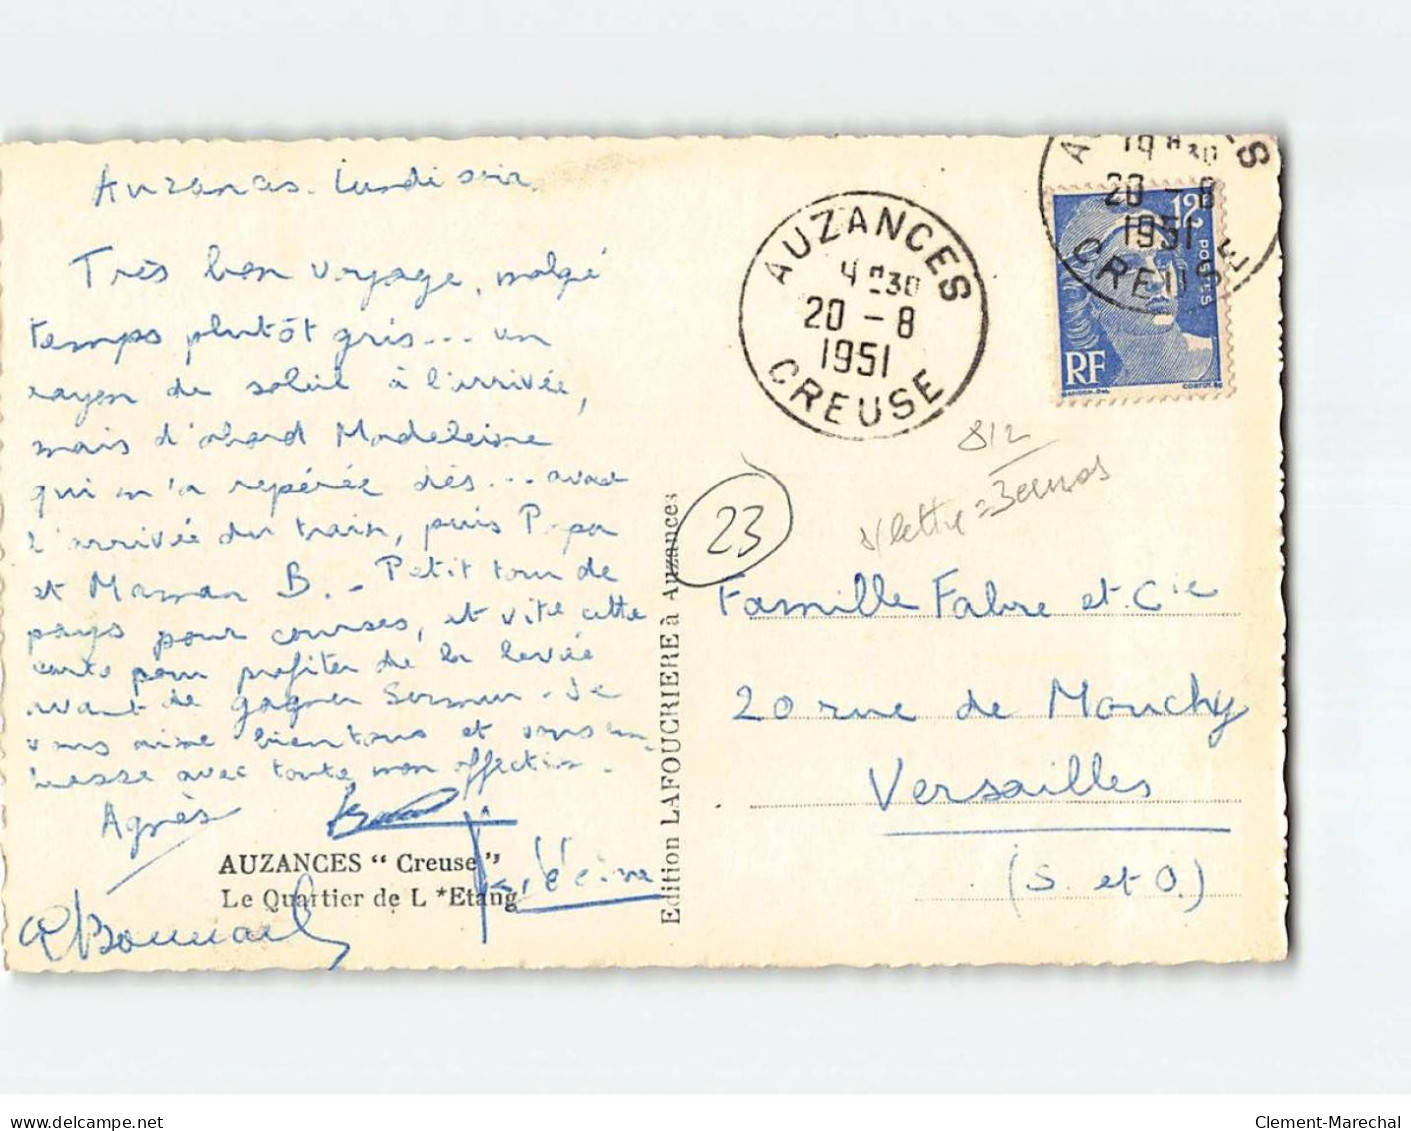 Auzances. Lundi soir
Très bon voyage, malgré
temps plutôt gris... un
rayon de soleil à l'arrivée,
mais d'abord Madeleine
qui m'a repérée dès... avant
l'arrivée du train, puis Papa
et Maman B. - Petit tour de
pays pour courses, et vite cette
carte pour profiter de la levée
avant de gagner Sermur. Je
vous aime bien tous et vous em-
brasse avec toute mon affection.
Agnès
AUZANCES “ Creuse”
Le Quartier de L *Etang
Edition LAFOUCRIERE à Auzances
AUZANCES
20 - 8
1951
CREUSE
19 H30
20 - 8
1951
CREUSE
12
POSTES
RF
812
23
Famille Fabre et Cie
20 rue de Mouchy
Versailles
(S. et O.)
www.delcampe.net
Clement-Marechal